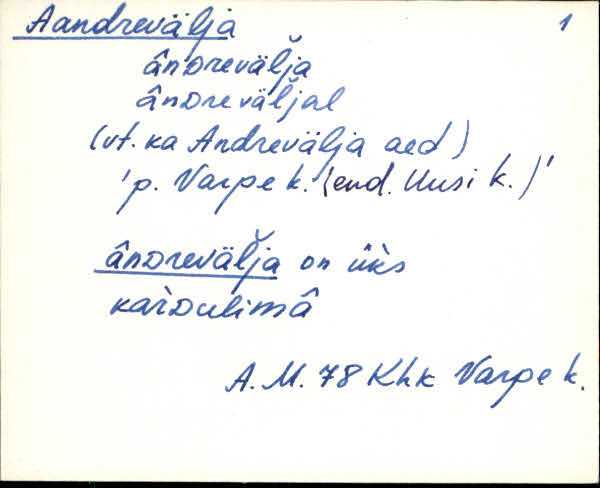 Aandrevälja 1
ândreväľja
ândreväľjal
(vt. ka Andrevälja aed)
'p. Varpe k. (end. Uusi k.)'
ândreväľja on ük̀s
kar̀oulimâ
A. M. 78 Khk Varpe k.